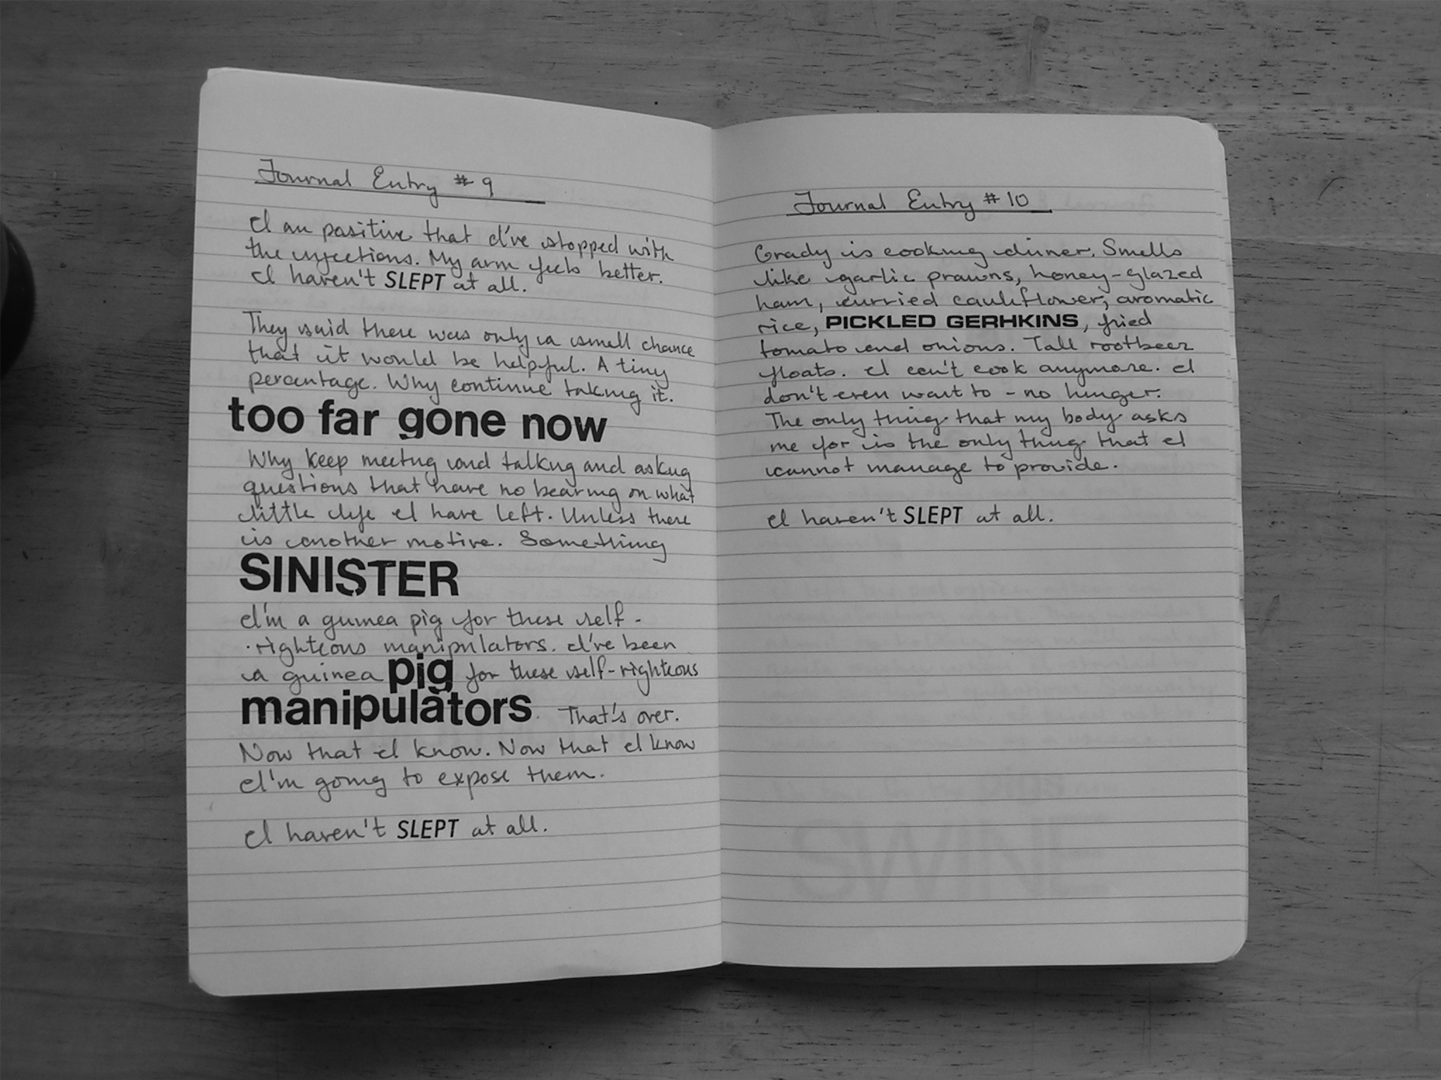 Journal Entry #9
I am positive that I've stopped with
the injections. My arm feels better.
I haven't SLEPT at all.
They said there was only a small chance
that it would be helpful. A tiny
percentage. Why continue taking it.
too far gone now
Why keep meeting and talking and asking
questions that have no bearing on what
little life I have left. Unless there
is another motive. Something
SINISTER
I'm a guinea pig for these self-
-righteous manipulators. I've been
a guinea pig for these self-righteous
manipulators. That's over.
Now that I know. Now that I know
I'm going to expose them.
I haven't SLEPT at all.
Journal Entry #10
Grady is cooking dinner. Smells
like garlic prawns, honey-glazed
ham, curried cauliflower, aromatic
rice, PICKLED GERHKINS, fried
tomato and onions. Tall rootbeer
floats. I can't cook anymore. I
don't even want to - no hunger.
The only thing that my body asks
me for is the only thing that I
cannot manage to provide.
I haven't SLEPT at all.
SWINE